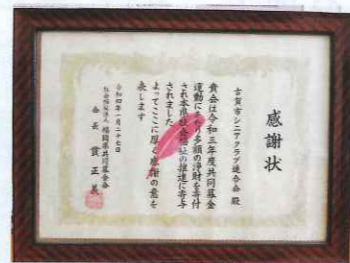 感謝状
古賀市シニアクラブ連合会 殿
貴会は令和三年度共同募金
運動により多額の浄財を寄付
され本県社会福祉の推進に寄与
されました
よってここに厚く感謝の意を
表します
令和四年一月二十七日
社会福祉法人 福岡県共同募金会
会長 貫 正義